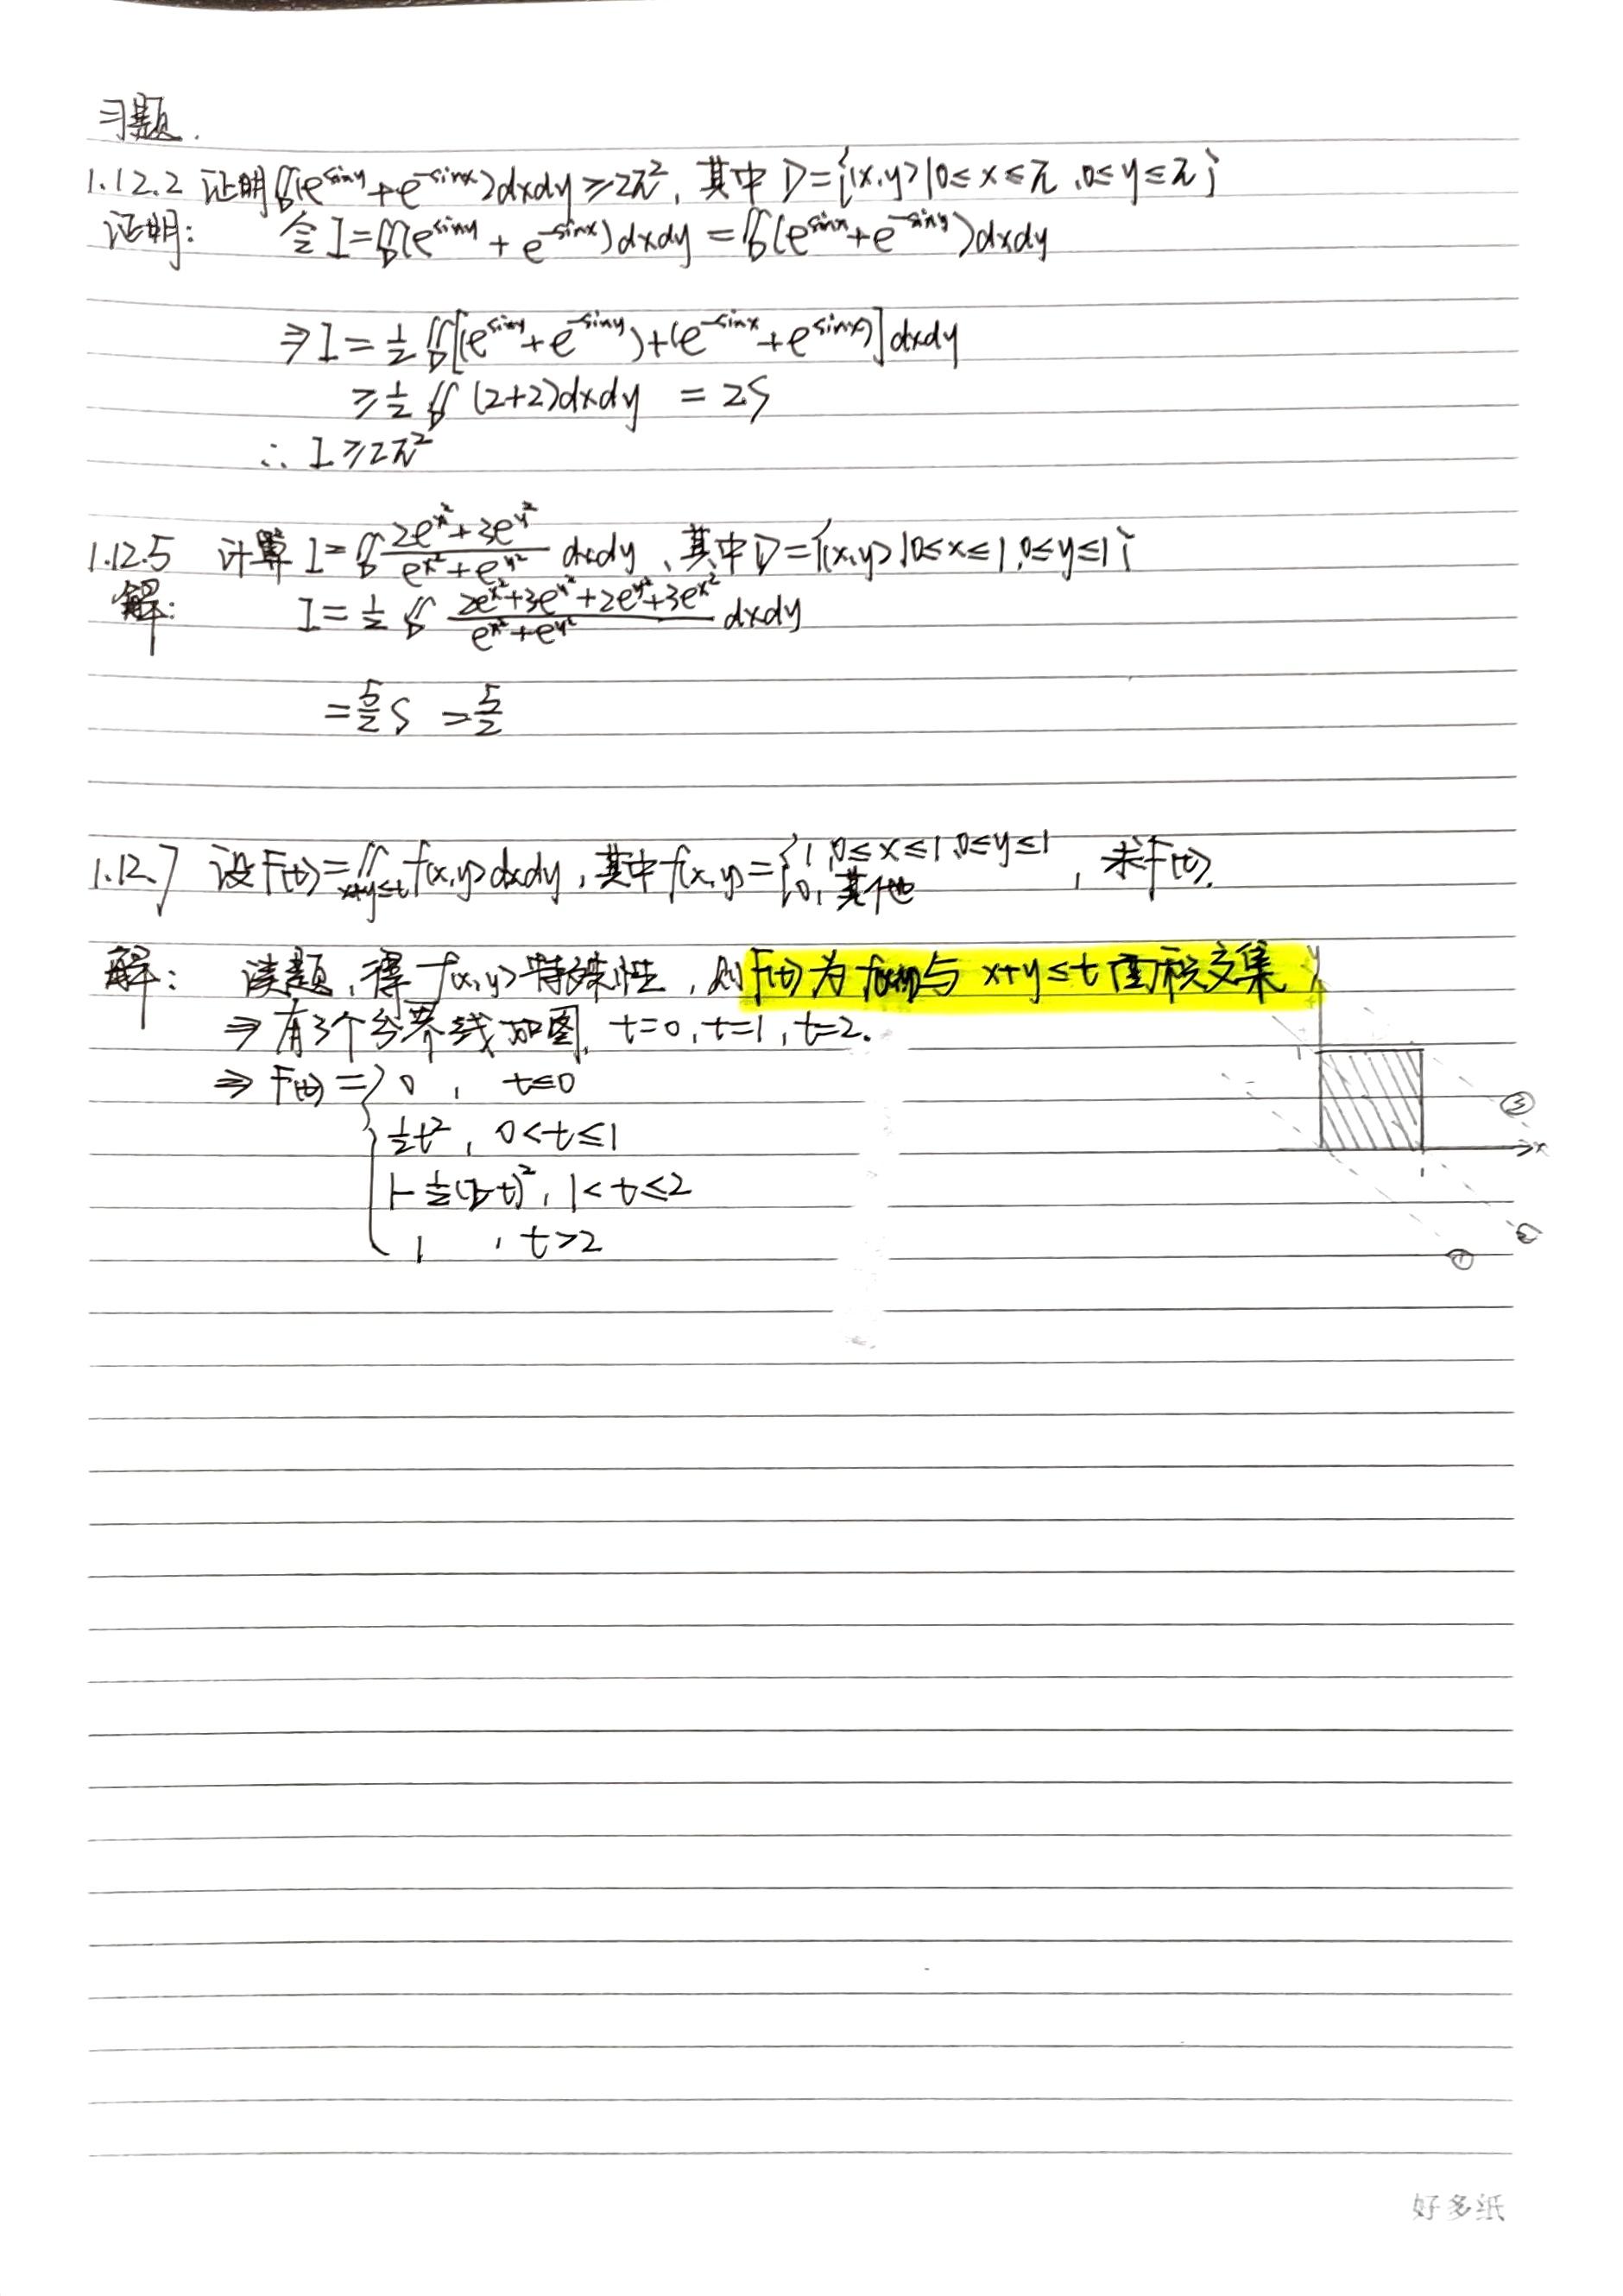 习题.
1.12.2 证明∬_D(e^{siny}+e^{-sinx})dxdy≥2π², 其中 D={(x,y)|0≤x≤π,0≤y≤π}
证明: 令 I=∬_D(e^{siny}+e^{-sinx})dxdy=∬_D(e^{sinx}+e^{-siny})dxdy
⇒I=½∬_D[(e^{siny}+e^{-siny})+(e^{-sinx}+e^{sinx})]dxdy
≥½∬_D(2+2)dxdy =2S
∴ I≥2π²
1.12.5 计算 I=∬_D (2e^{x²}+3e^{y²})/(e^{x²}+e^{y²}) dxdy, 其中D={(x,y)|0≤x≤1,0≤y≤1}
解: I=½∬_D (2e^{x²}+3e^{y²}+2e^{y²}+3e^{x²})/(e^{x²}+e^{y²}) dxdy
=5/2 S =5/2
1.12.7 设F(t)=∬_{x+y≤t}f(x,y)dxdy, 其中f(x,y)={1, 0≤x≤1,0≤y≤1 0, 其他 , 求F(t).
解: 读题,得 f(x,y)特殊性, 则F(t)为f(x,y)与 x+y≤t面积交集
⇒有3个分界线如图, t=0, t=1, t=2.
⇒ F(t)={0, t≤0
½t², 0<t≤1
1-½(2-t)², 1<t≤2
1 , t>2
y
1
x
1
③
②
①
好多纸